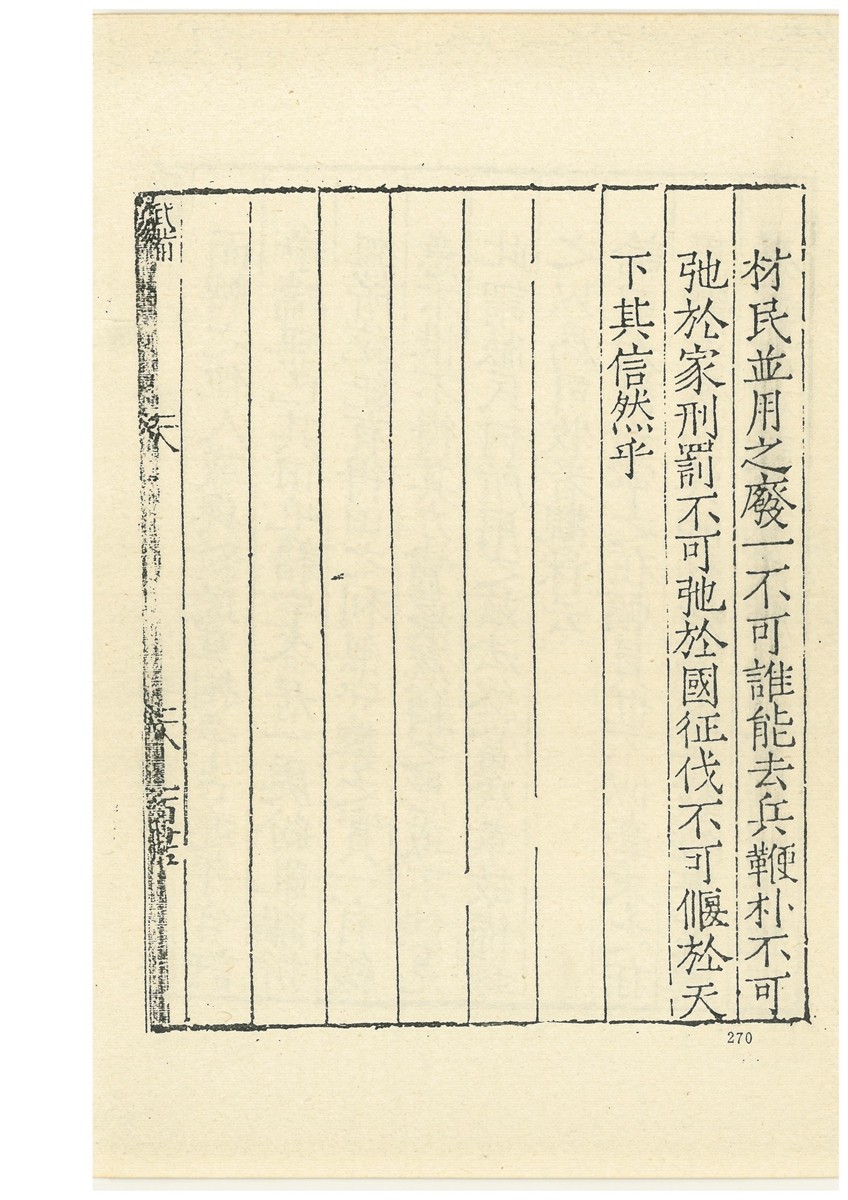 材民並用之廢一不可誰能去兵鞭朴不可
弛於家刑罰不可弛於國征伐不可偃於天
下其信然乎
270